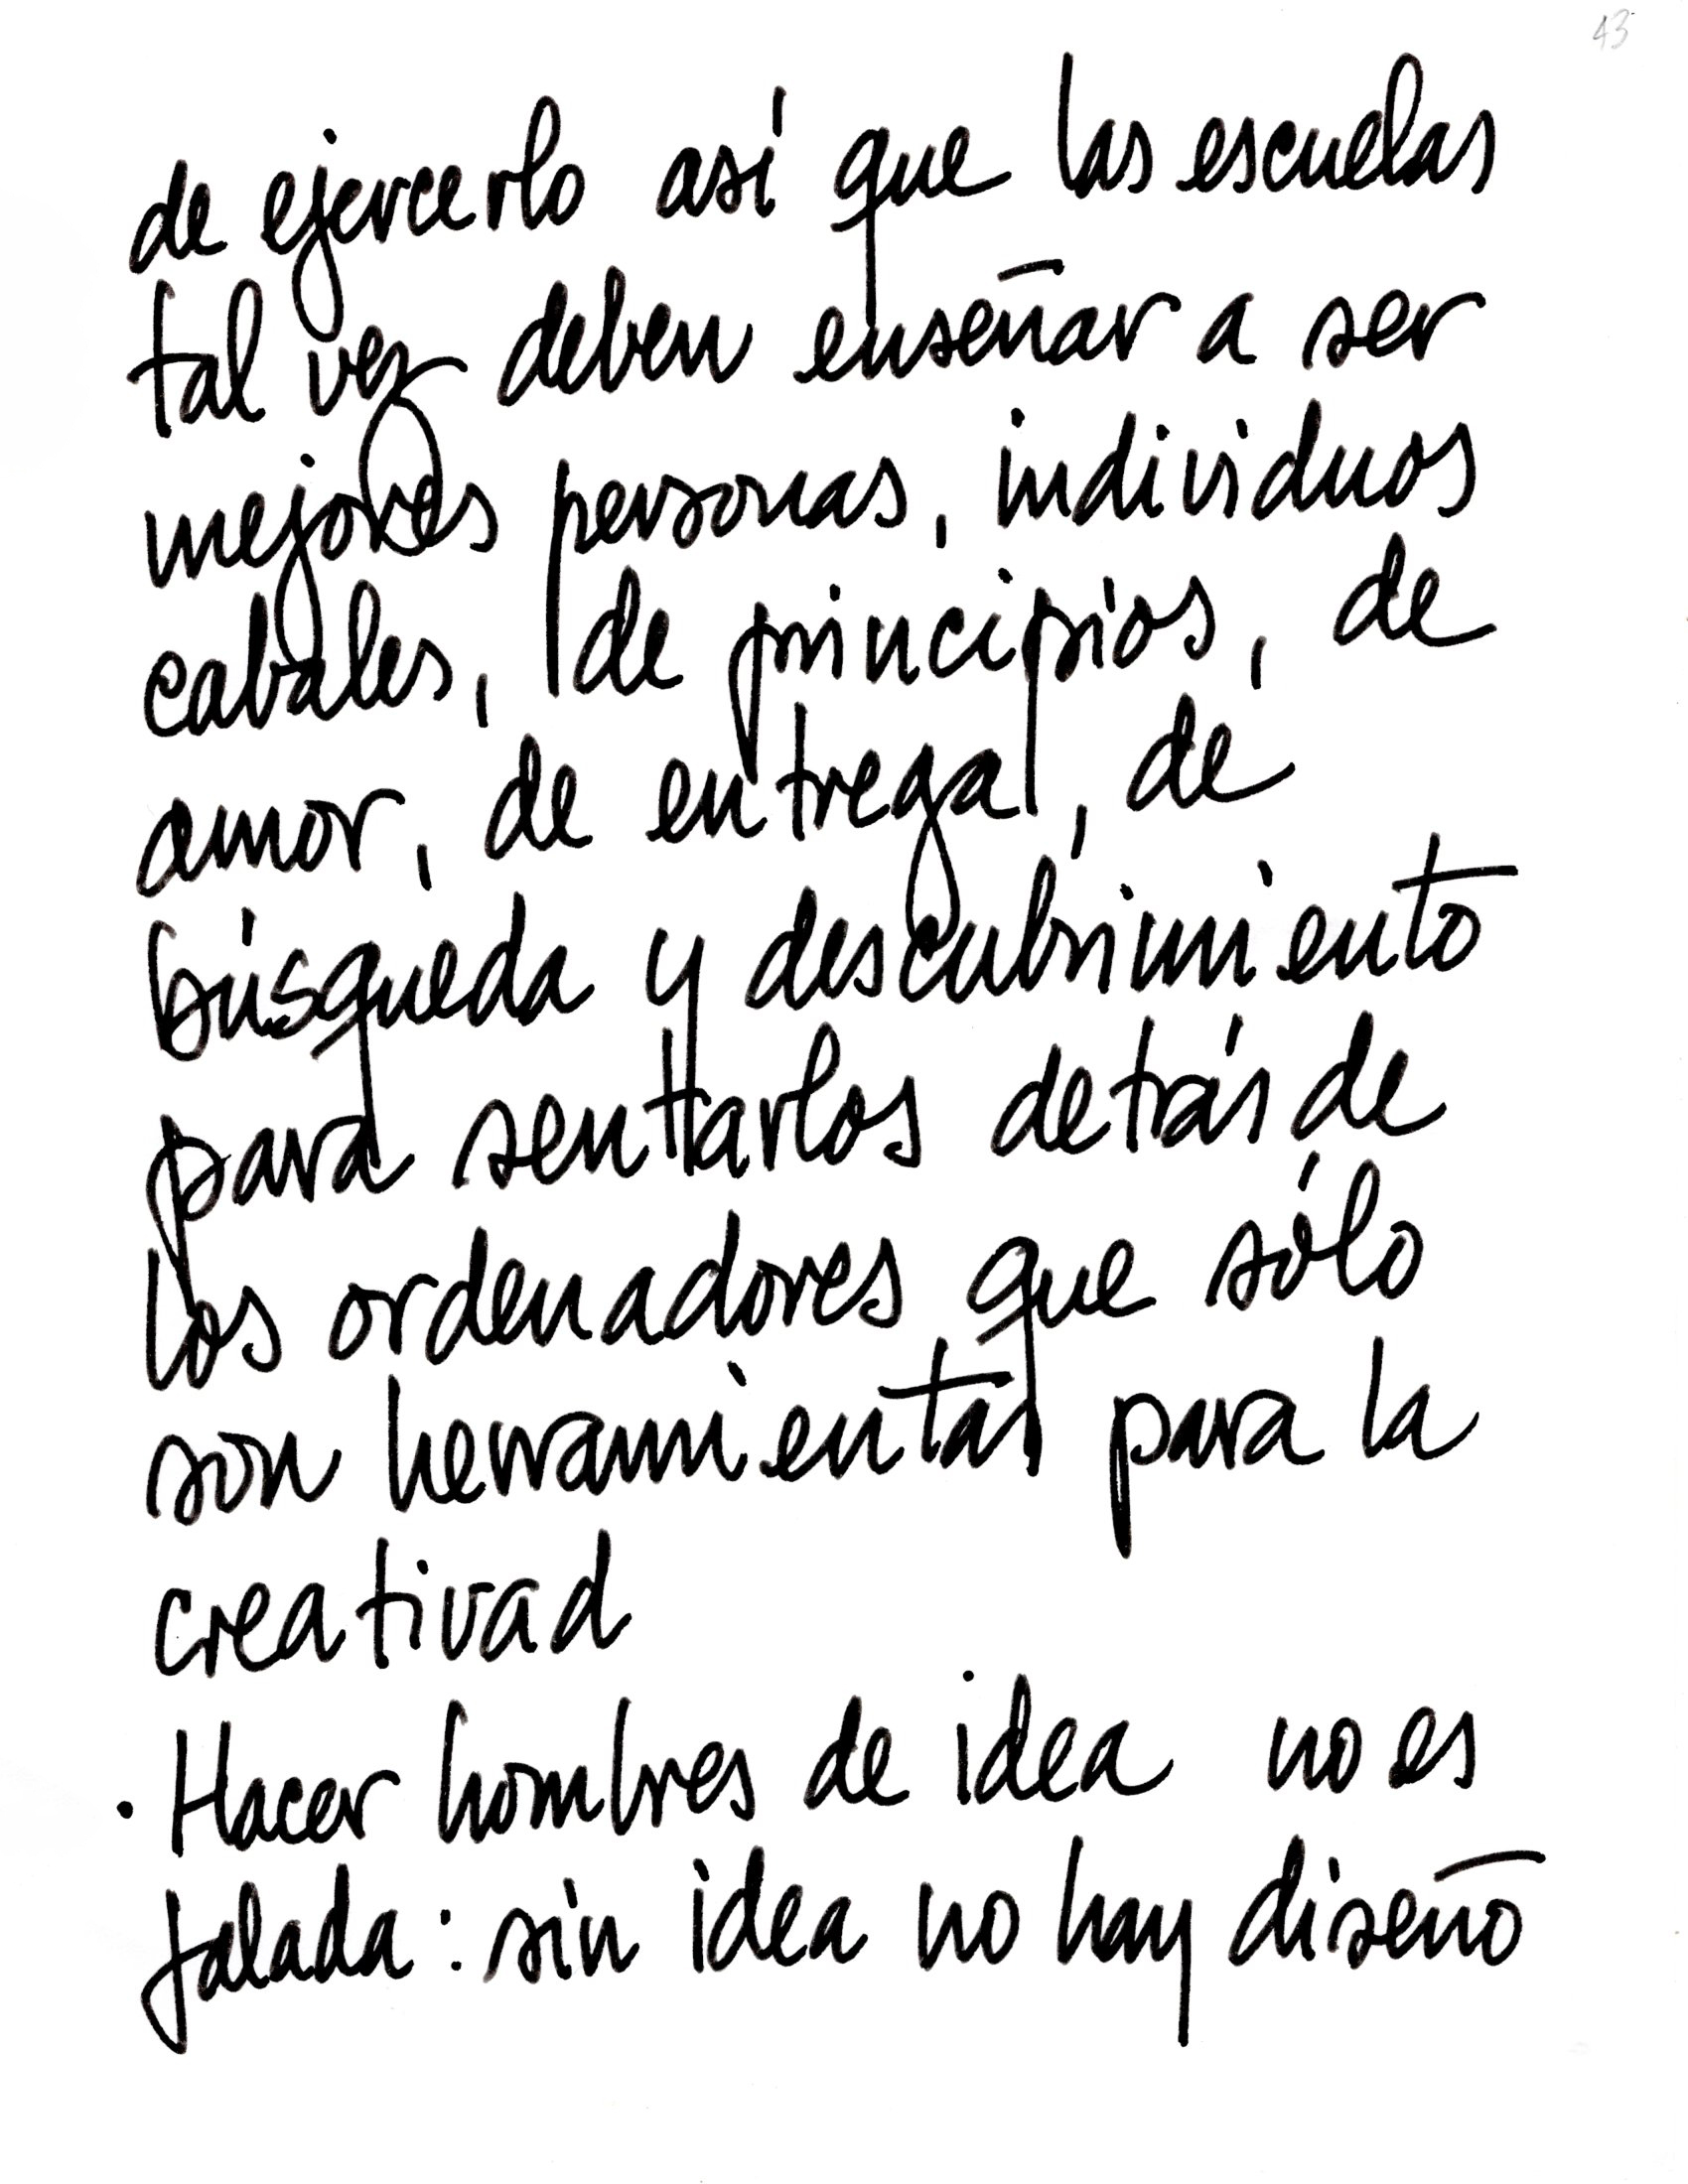 43
de ejercerlo así que las escuelas
tal vez deben enseñar a ser
mejores personas, individuos
cabales, de principios, de
amor, de entrega, de
búsqueda y descubrimiento
para sentarlos detrás de
los ordenadores que sólo
son herramientas para la
creativad
· Hacer hombres de idea no es
jalada: sin idea no hay diseño